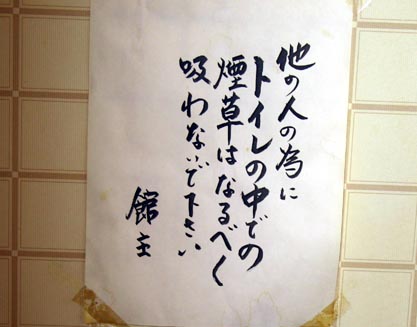 他の人の為に
トイレの中での
煙草はなるべく
吸わないで下さい
館主